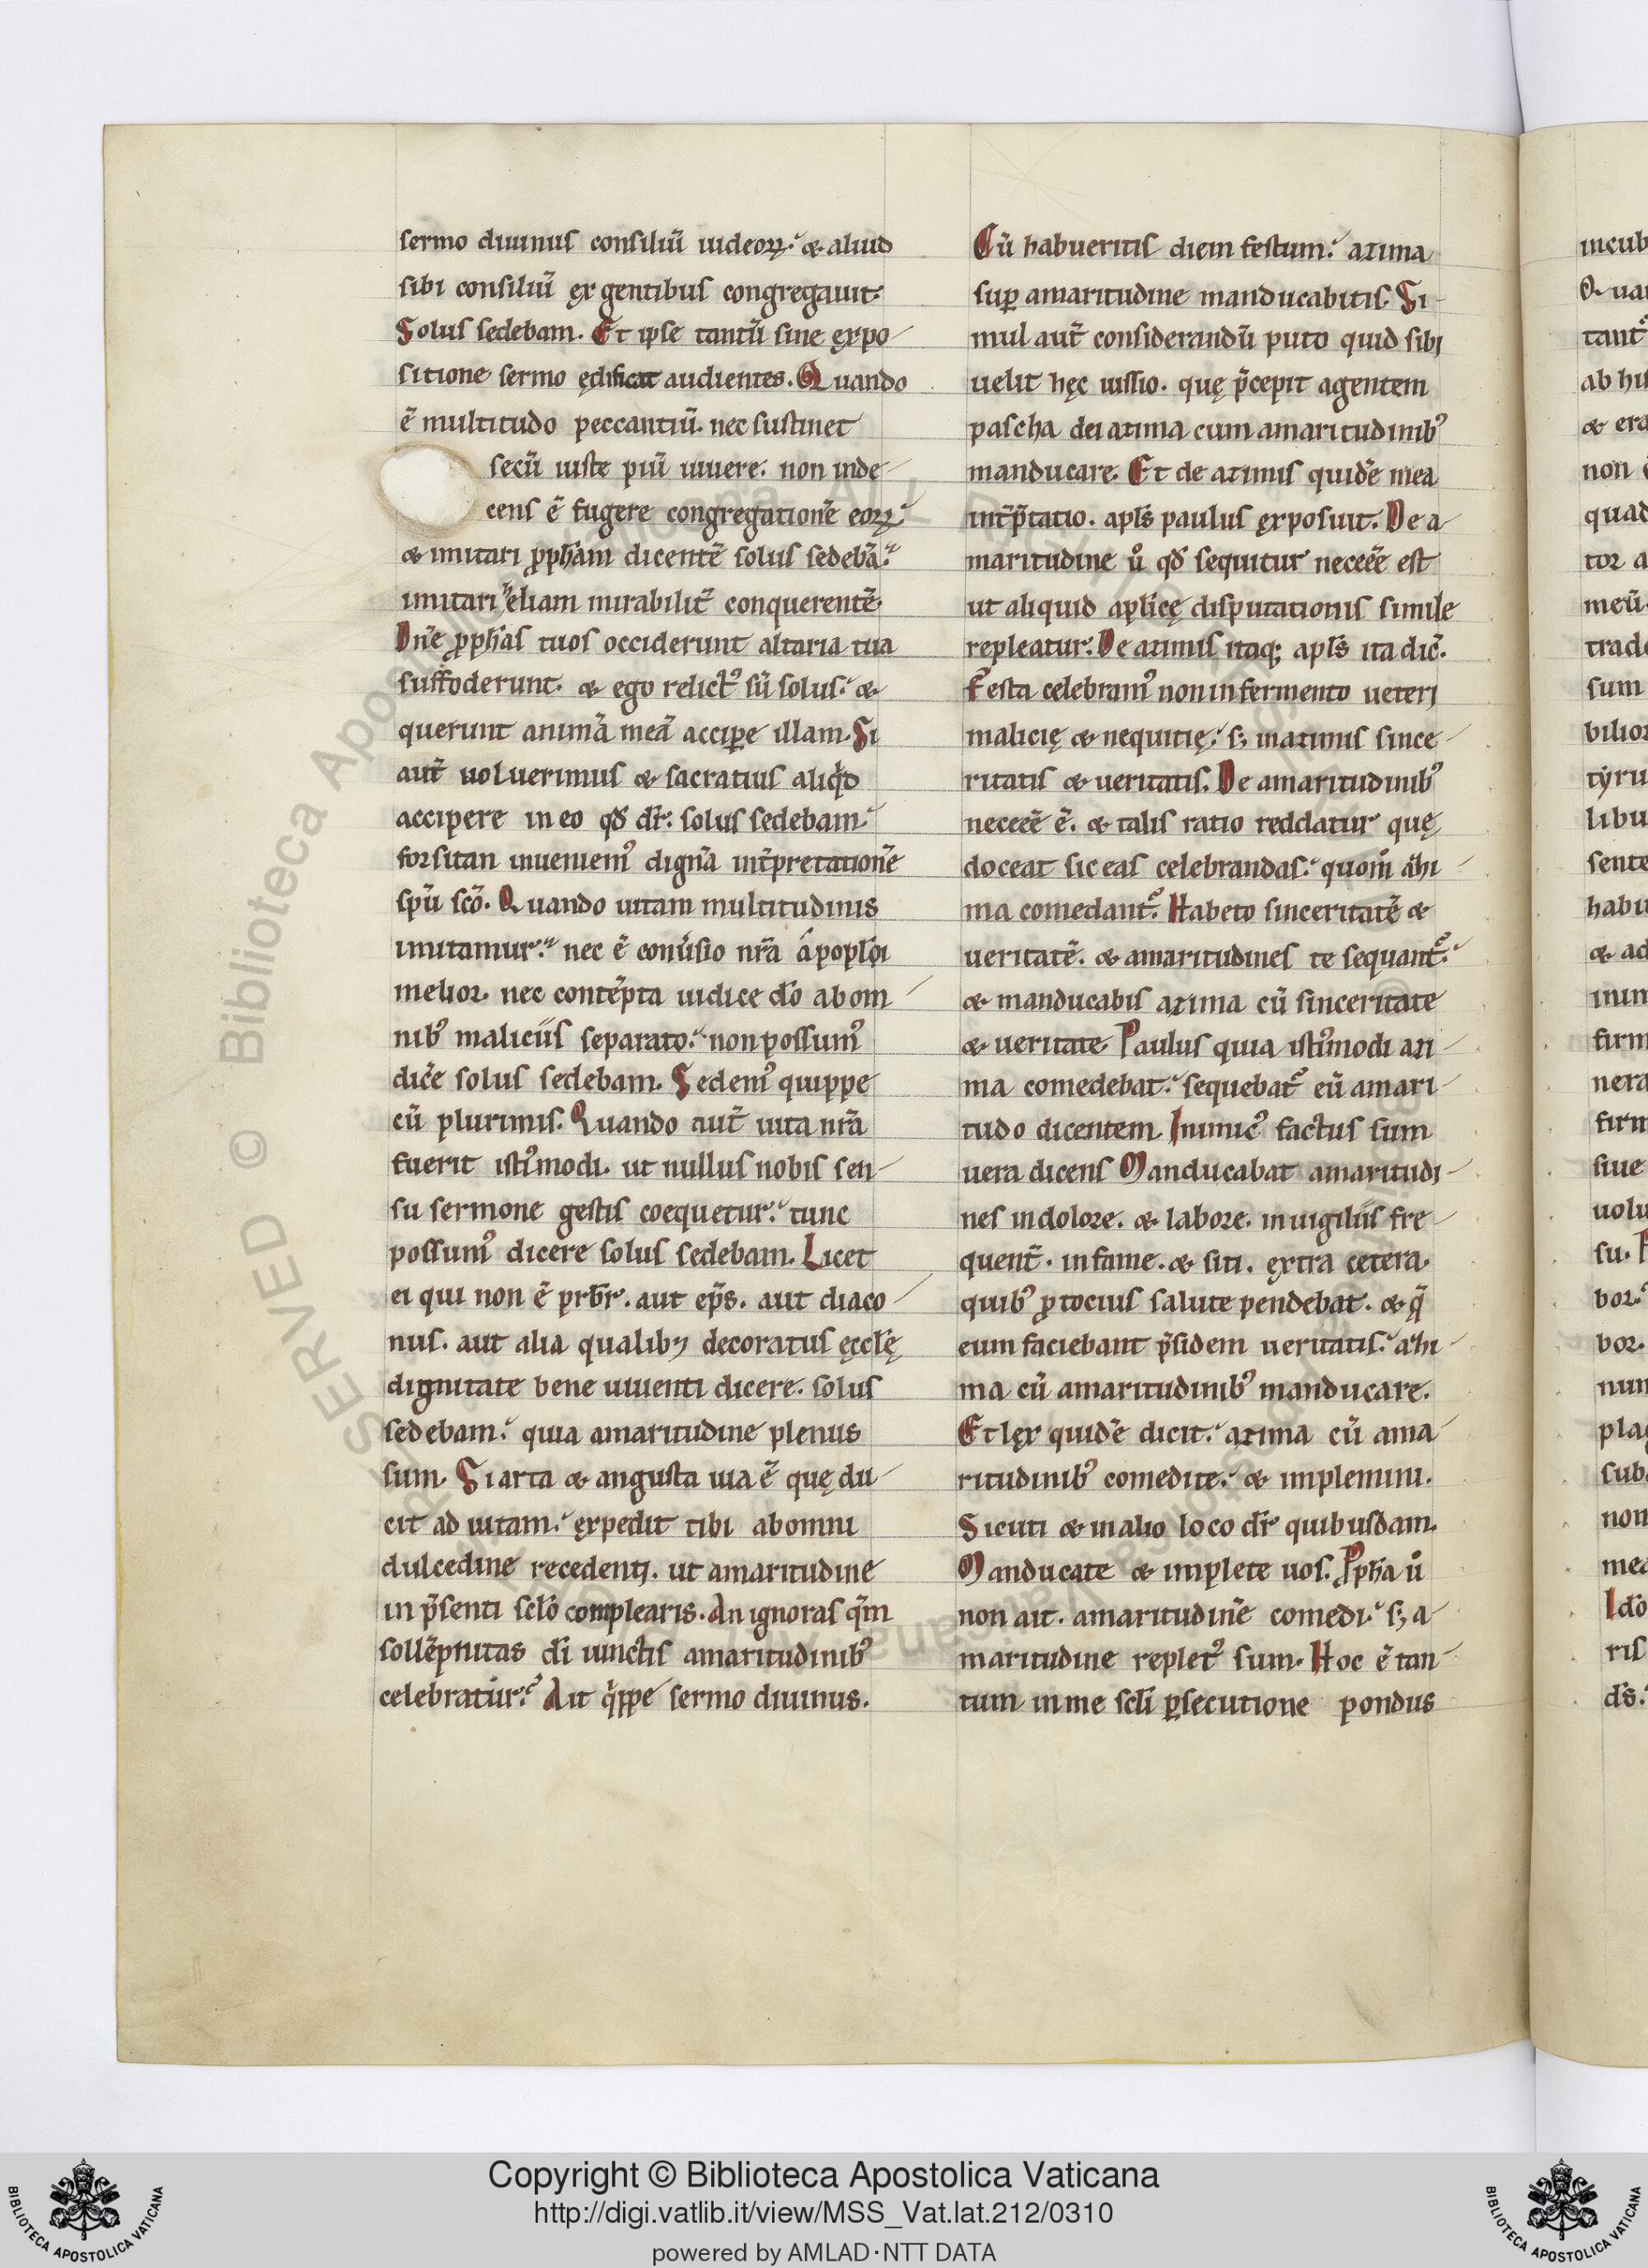 sermo diuinus consiliũ iudeoꝝ. & aliud
sibi consiliũ ęx gentibus congregauit.
Solus sedebam. Et ipse tantũ sine ęxpo
sitione sermo ędificat audientes. Quando
ẽ multitudo peccantiũ. nec sustinet
secũ iuste piũ uiuere. non inde
cens ẽ fugere congregationẽ eoꝝ.
& imitari ꝓph̃am dicentẽ solus sedebã.
imitari eliam mirabilit̃ conquerentẽ.
Dñe ꝓph̃as tuos occiderunt altaria tua
suffoderunt. & ego relictꝰ sũ solus. &
querunt animã meã acciꝑe illam. Si
aut̃ uoluerimus & sacratius aliqͥd
accipere in eo qđ dr̃. solus sedebam.
forsitan inueniemꝰ dignã int̃pretationẽ
sp̃u sc̃o. Quando uitam multitudinis
imitamur. nec ẽ conũsio nr̃a á poplõꝝ
melior. nec contẽpta iudice dõ ab om
nibꝰ maliciis separato. non possumꝰ
dic̃e solus sedebam. Sedemꝰ quippe
cũ plurimis. Quando aut̃ uita nr̃a
fuerit istꝰmodi. ut nullus nobis sen
su sermone gestis coequetur. tunc
possumꝰ dicere solus sedebam. Licet
ei qui non ẽ prbr̃. aut ep̃s. aut diaco
nus. aut alia qualibꝫ decoratus ęccl̃ę
dignitate bene uiuenti dicere. solus
sedebam. quia amaritudine plenus
sum. Si arta & angusta uia ẽ quę du
cit ad uitam. ęxpedit tibi ab omni
dulcedine recedenti. ut amaritudine
in p̃senti scl̃o complearis. An ignoras qm̃
sollẽpnitas dĩ iunctis amaritudinibꝰ
celebratur. Ait qͥppe sermo diuinus.
Cũ habueritis diem festum. azima
suꝑ amaritudine manducabitis. Si
mul aut̃ considerandũ puto quid sibi
uelit hęc iussio. quę p̃cepit agentem
pascha dei azima cum amaritudinibꝰ
manducare. Et de azimis quidẽ mea
int̃p̃tatio. apl̃s paulus ęxposuit. De a
maritudine ů qđ sequitur neceẽe est
ut aliquid apl̃icę disputationis simile
repleatur. De azimis itaq; apl̃s ita dic̃.
Festa celebramꝰ non in fermento ueteri
malicię & nequitię. sꝫ in azimis since
ritatis & ueritatis. De amaritudinibꝰ
neceẽe ẽ. & talis ratio reddatur quę
doceat sic eas celebrandas. quom̊ azi
ma comedant᷑. Habeto sinceritatẽ &
ueritatẽ. & amaritudines te sequant᷑.
& manducabis azima cũ sinceritate
& ueritate. Paulus quia istꝰmodi azi
ma comedebat. sequebat᷑ eũ amari
tudo dicentem. Inimicꝰ factus sum
uera dicens. Manducabat amaritudi
nes in dolore. & labore. in uigiliis fre
quent̃. in fame. & siti. ęxtra cetera.
quibꝰ ꝓ tocius salute pendebat. & q̃
eum faciebant p̃sidem ueritatis. azi
ma cũ amaritudinibꝰ manducare.
Et lęx quidẽ dicit. azima cũ ama
ritudinibꝰ comedite. & implemini.
Sicuti & in alio loco dr̃ quibusdam.
Manducate & implete uos. Ꝓph̃a ů
non ait. amaritudinẽ comedi. sꝫ a
maritudine repletꝰ sum. Hoc ẽ tan
tum in me scl̃i ꝑsecutione pondus
Copyright © Biblioteca Apostolica Vaticana
http://digi.vatlib.it/view/MSS_Vat.lat.212/0310
powered by AMLAD·NTT DATA